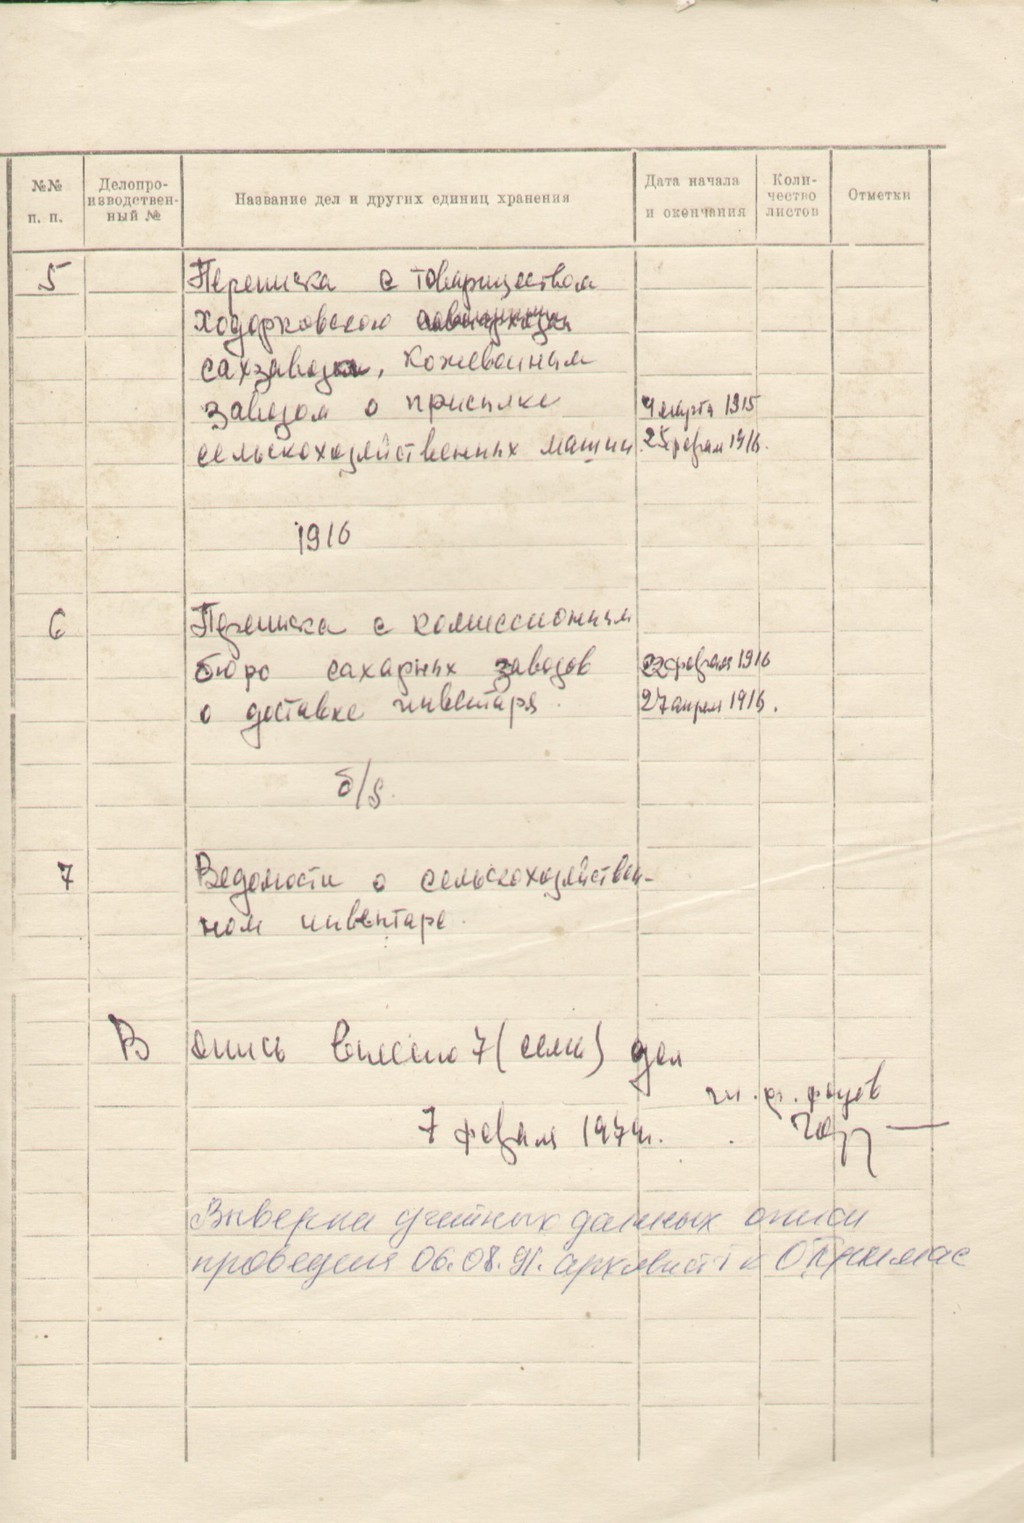 №№ п. п.
Делопро-
изводствен-
ный №
Название дел и других единиц хранения
Дата начала
и окончания
Коли-
чество
листов
Отметки
5
Переписка с товариществом
Ходорковского
сахзавода, кожевенным
заводом о присылке
4 марта 1915
сельскохозяйственных машин
25 феврал 1916.
1916
6
Переписка с комиссионным
бюро сахарных заводов
22 феврал 1916
о доставке инвентаря.
27 апрел 1916.
б/д.
7
Ведомости о сельскохозяйствен-
ном инвентаре.
В опись внесено 7 (семь) дел
7 февраля
Выверка учетных данных описи
проведена 06.08.91. архивист